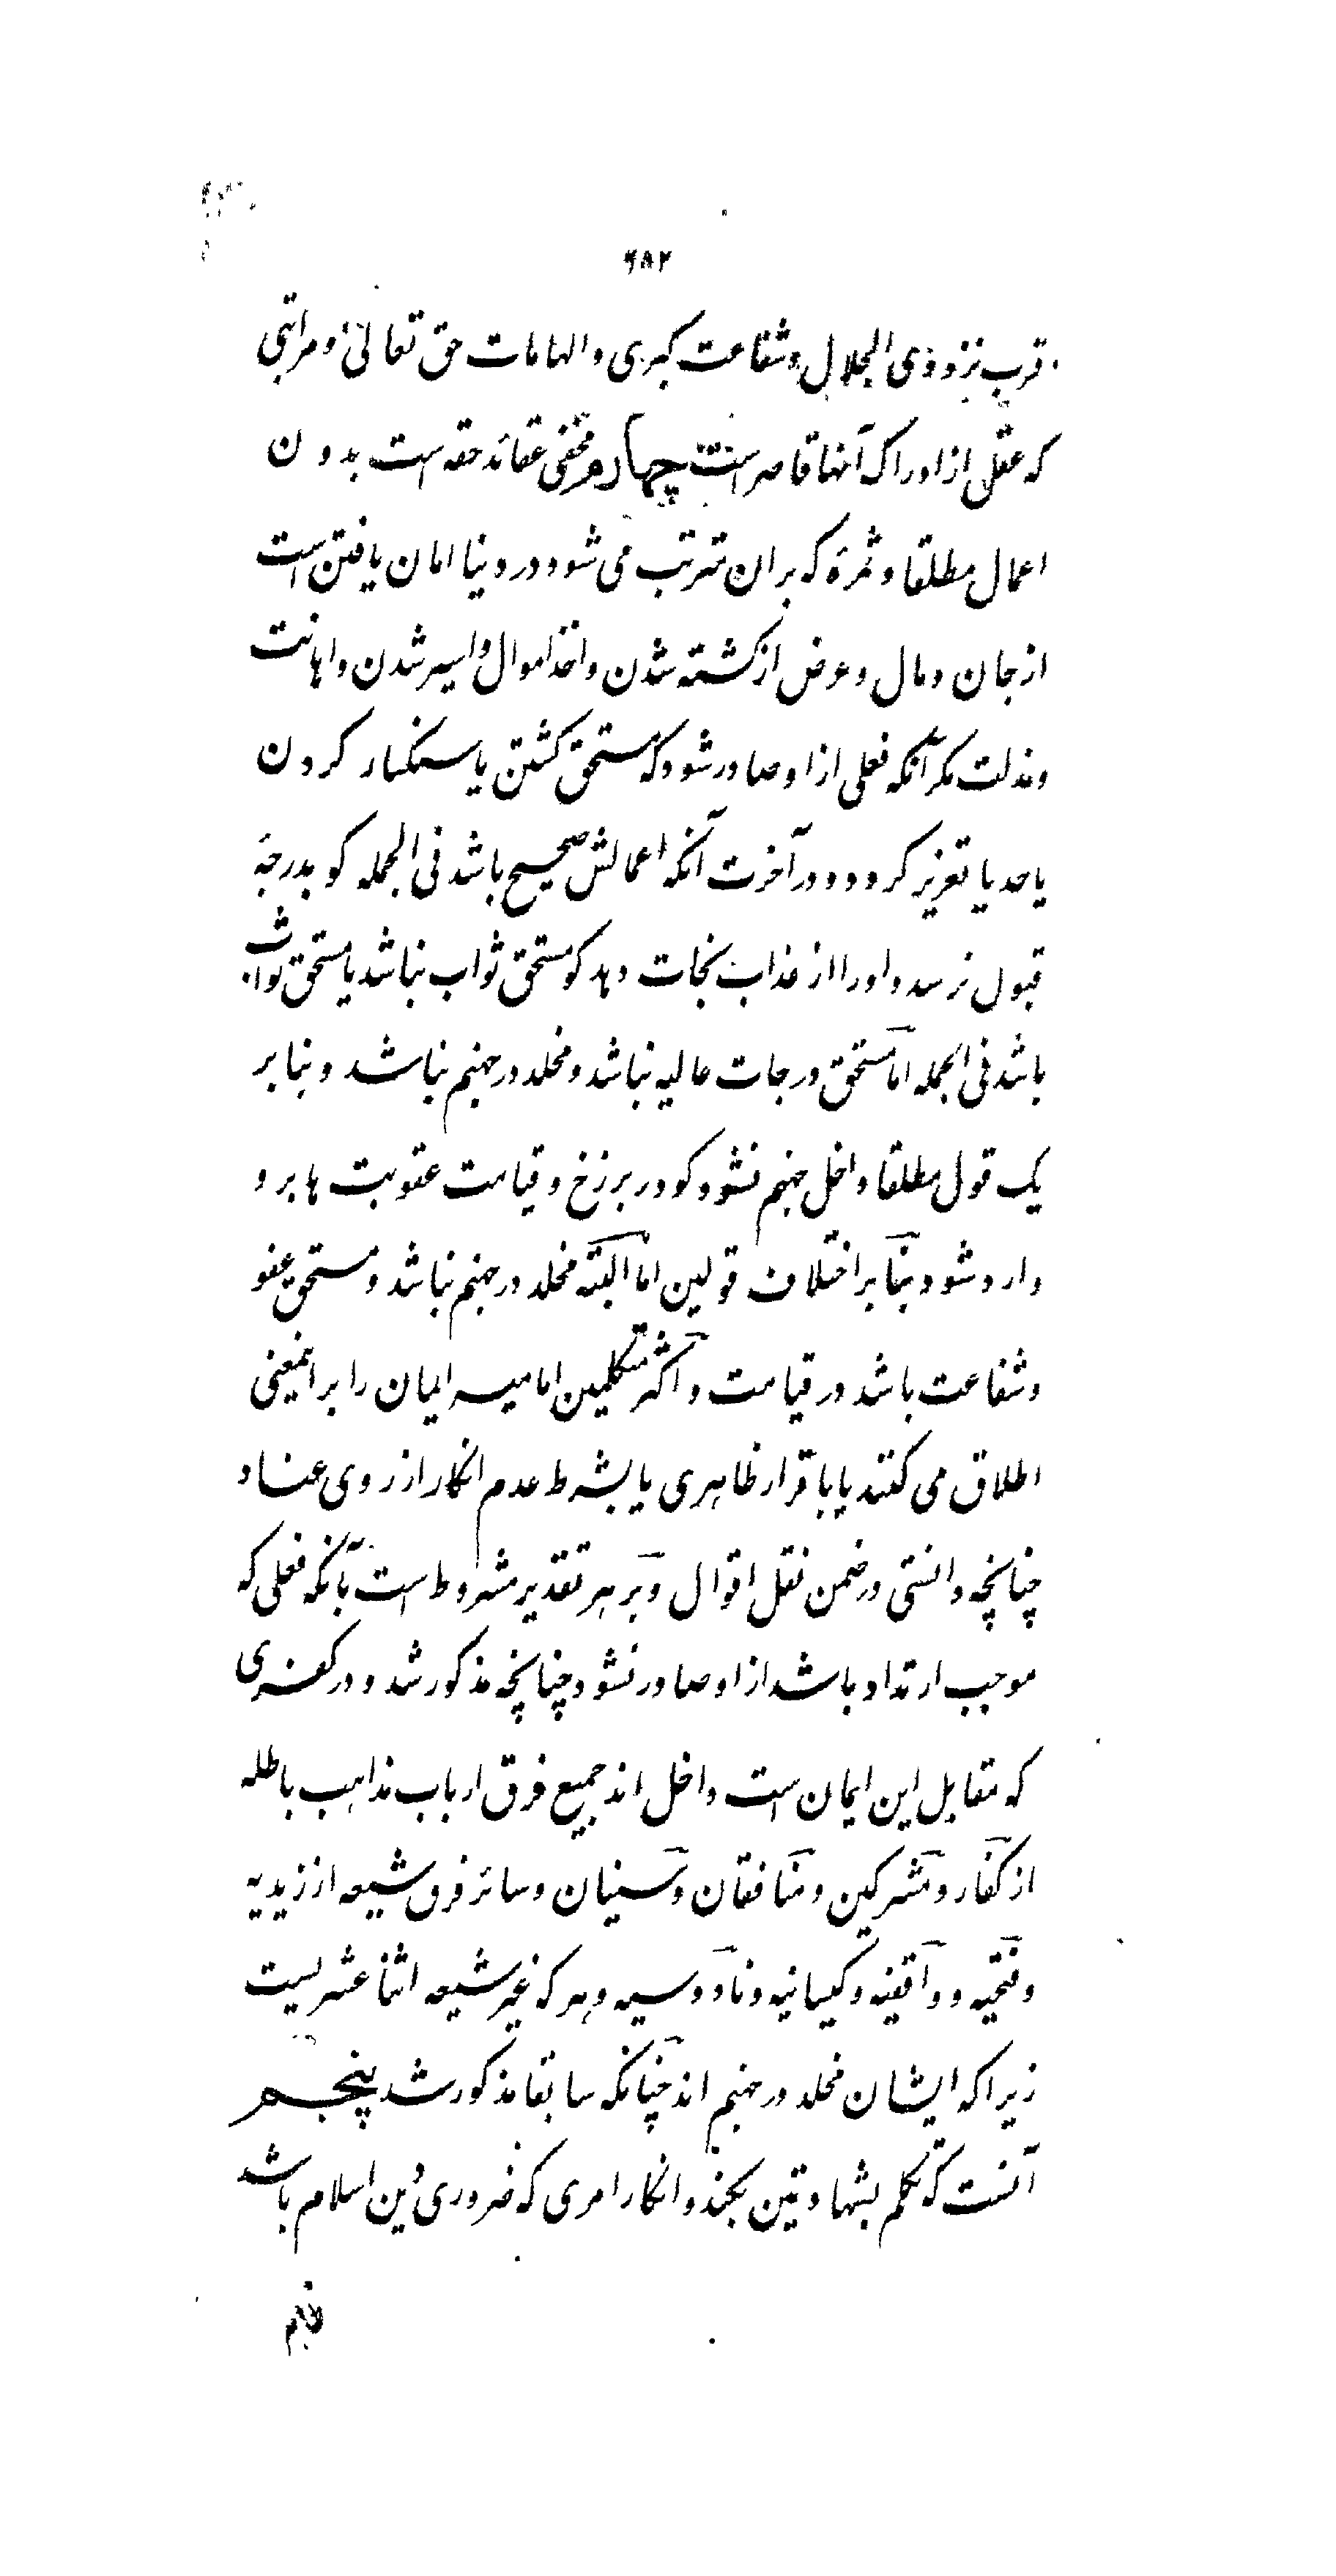 ۶۸۲
قرب نزد ذی الجلال و شفاعت کبری و الهامات حق تعالیٰ و مراتبی
که عقل از ادراک آنها قاصر است چهارم محض عقائد حقه است بدون
اعمال مطلقا و ثمرۀ که بران مترتب می شود در دنیا امان یافتن است
از جان و مال و عرض از کشته شدن و اخذ اموال و اسیر شدن و اهانت
و مذلت مگر آنکه فعلی از او صادر شود که مستحق کشتن یا سنگسار کردن
یا حد یا تعزیر کردد و در آخرت آنکه اعمالش صحیح باشد فی الجمله گو بدرجۀ
قبول نرسد و او را از عذاب نجات دهد گو مستحق ثواب نباشد یا مستحق ثواب
باشد فی الجمله اما مستحق درجات عالیه نباشد و مخلد در جهنم نباشد و بنا بر
یک قول مطلقا داخل جهنم نشود گو در برزخ و قیامت عقوبت ها برو
وارد شود بنا بر اختلاف قولین اما البته مخلد در جهنم نباشد و مستحق عفو
و شفاعت باشد در قیامت و اکثر متکلمین امامیه ایمان را بر اینمعنی
اطلاق می کنند یا باقرار ظاهری یا بشرط عدم انکار از روی عناد
چنانچه دانستی در ضمن نقل اقوال و بر هر تقدیر مشروط است بآنکه فعلی که
موجب ارتداد باشد از او صادر نشود چنانچه مذکور شد و در کفری
که مقابل این ایمان است داخل اند جمیع فرق ارباب مذاهب باطله
از کفار و مشرکین و منافقان و سنیان و سائر فرق شیعه از زیدیه
و فتحیه و واقفیه و کیسانیه و ناووسیه و هر که غیر شیعه اثنا عشریست
زیرا که ایشان مخلد در جهنم اند چنانکه سابقا مذکور شد پنجم
آنست که تکلم بشهادتین بکند و انکار امری که ضروری دین اسلام باشد